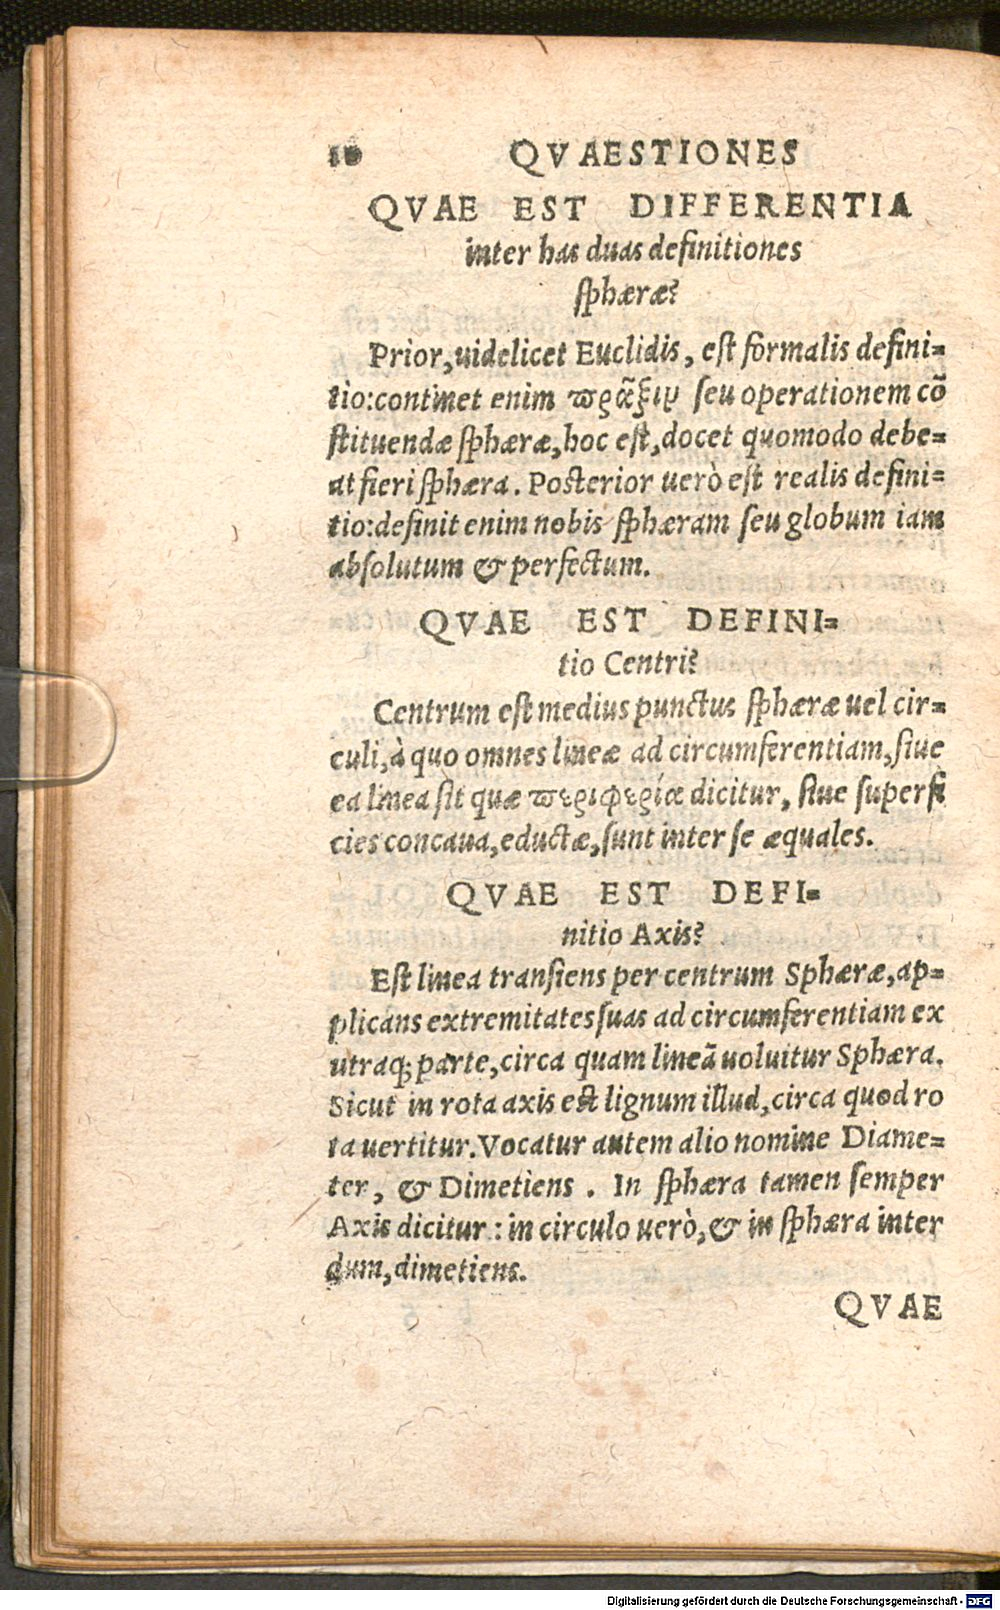 10 QVAESTIONES
QVAE EST DIFFERENTIA
inter has duas definitiones
sphæræ?
Prior, uidelicet Euclidis, est formalis defini=
tio: continet enim πρᾶξιν seu operationem cō
stituendæ sphæræ, hoc est, docet quomodo debe=
at fieri sphæra. Posterior uerò est realis defini=
tio: definit enim nobis sphæram seu globum iam
absolutum & perfectum.
QVAE EST DEFINI=
tio Centri?
Centrum est medius punctus sphæræ uel cir=
culi, à quo omnes lineæ ad circumferentiam, siue
ea linea sit quæ περιφερία dicitur, siue superfi
cies concaua, eductæ, sunt inter se æquales.
QVAE EST DEFI=
nitio Axis?
Est linea transiens per centrum Sphæræ, ap=
plicans extremitates suas ad circumferentiam ex
utraq; parte, circa quam lineā uoluitur Sphæra.
Sicut in rota axis est lignum illud, circa quod ro
ta uertitur. Vocatur autem alio nomine Diame=
ter, & Dimetiens. In sphæra tamen semper
Axis dicitur: in circulo uerò, & in sphæra inter
dum, dimetiens.
QVAE
Digitalisierung gefördert durch die Deutsche Forschungsgemeinschaft - DFG